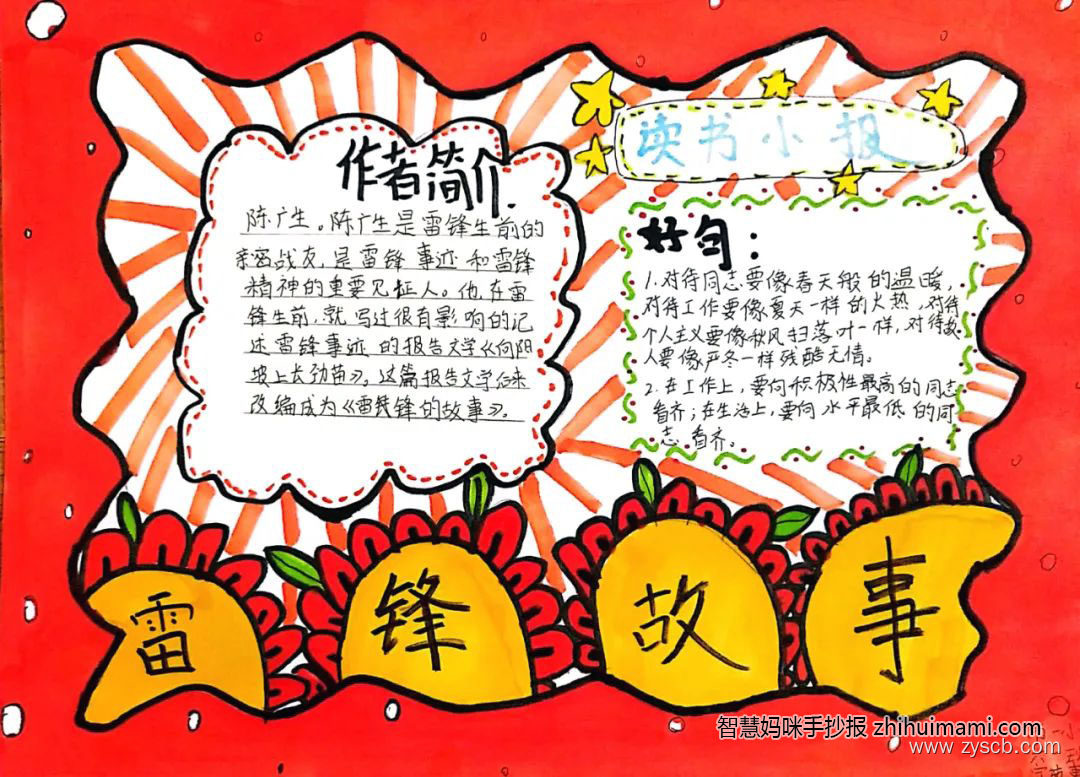 读书小报
作者简介
陈广生。陈广生是雷锋生前的
亲密战友,是雷锋事迹和雷锋
精神的重要见证人。他在雷
锋生前,就写过很有影响的记
述雷锋事迹的报告文学《向阳
坡上长劲苗》。这篇报告文学后来
改编成为《雷锋的故事》。
好句:
1.对待同志要像春天般的温暖,
对待工作要像夏天一样的火热,对待
个人主义要像秋风扫落叶一样,对待敌
人要像严冬一样残酷无情。
2.在工作上,要向积极性最高的同志
看齐;在生活上,要向水平最低的同
志看齐。
雷锋故事
智慧妈咪手抄报 zhihuimami.com
www.zyscb.com